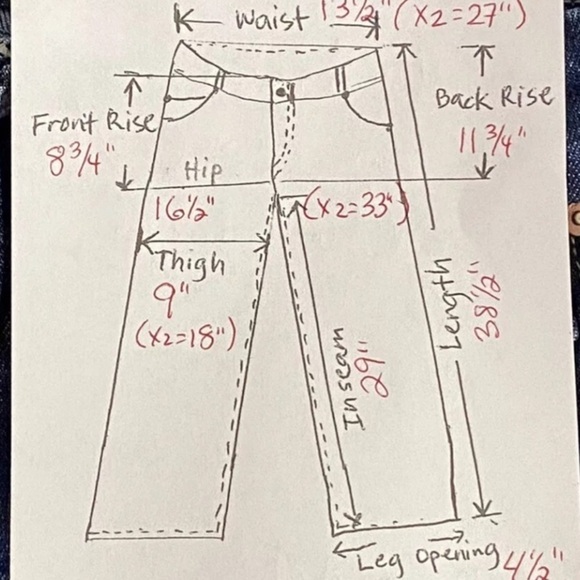 Waist 13½" (x2=27")
Front Rise
8¾"
Back Rise
11¾"
Hip
16½" (x2=33")
Thigh
9"
(x2=18")
Inseam
29"
Length
38½"
Leg Opening 4½"